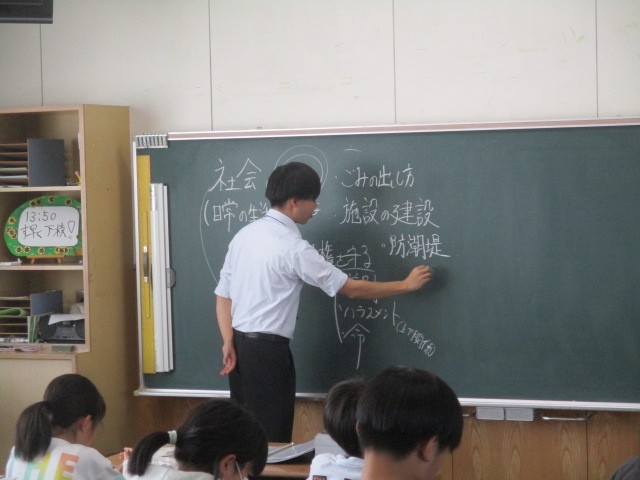 社会
・ごみの出し方
(日常の生
・施設の建設
・防潮堤
を守る
ハラスメント
命
13:50
下校!